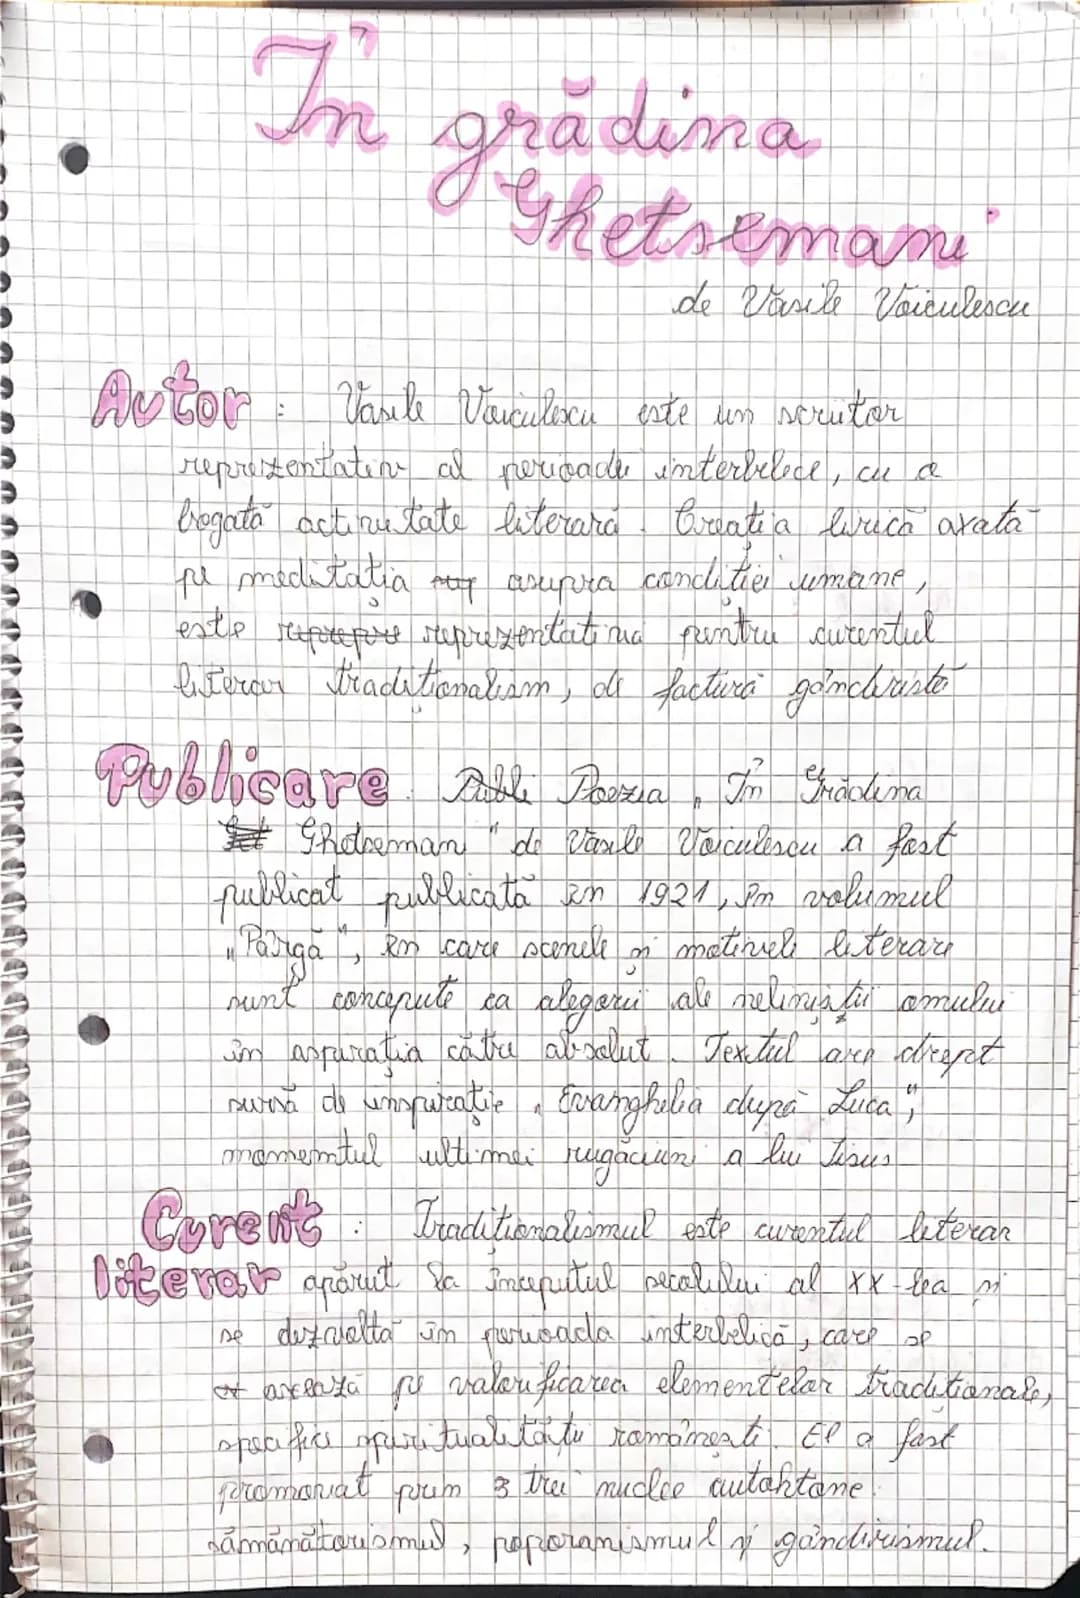 În grădina
Ghetsemani
de Vasile Voiculescu
Autor : Vasile Voiculescu este un scriitor
reprezentativ al perioadei interbelice, cu o
bogată activitate literară. Creația lirică axată
pe meditația asupra condiției umane,
este reprezentativă pentru curentul
literar tradiționalism, de factură gândiristă
Publicare : Poezia „ În Grădina
Ghetseman " de Vasile Voiculescu a fost
publicat publicată în 1921, în volumul
„Pârgă", în care scenele și motivele literare
sunt concepute ca alegorii ale neliniștii omului
în aspirația către absolut. Textul are drept
sursă de inspirație „ Evanghelia după Luca",
momentul ultimei rugăciuni a lui Iisus
Curent : Tradiționalismul este curentul literar
literar apărut la începutul secolului al XX-lea și
se dezvoltă în perioada interbelică, care se
axează pe valorificarea elementelor tradiționale,
specifice spiritualității românești. El a fost
promovat prin 3 trei nuclee autohtone:
sămănătorismul, poporanismul și gândirismul.